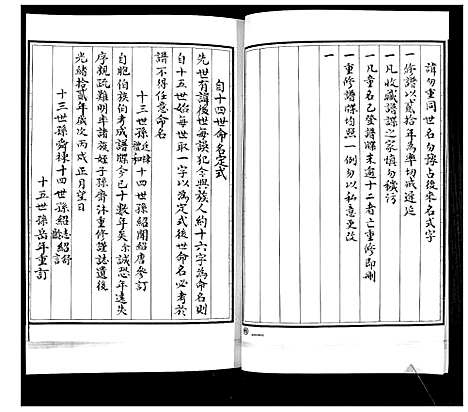 諱勿重同世名勿豫占後來名式字
一修譜以貳十年為率切戒遲延
一凡收藏譜牒之家慎勿穢污
一凡童名已登譜牒未逾十二者亡重修即刪
一重修譜牒均照一例勿以私意更改
一
自十四世命名定式
先世有諱後世每誤犯今與族人約十六字為命名則
自十五世始每世取一字以為定式後世命名必考於
譜不得任意命名
十三世孫 近 十四世孫紹聞紹唐參訂
自胞伯族伯考成譜牒今已十數年矣誠恐年遠失
序親疏難明率諸族姪子孫齋沐重修謹誌遺後
光緒拾貳年歲次丙戌正月望日
十三世孫齊棟十四世孫紹志紹訂
十五世孫岳年重訂